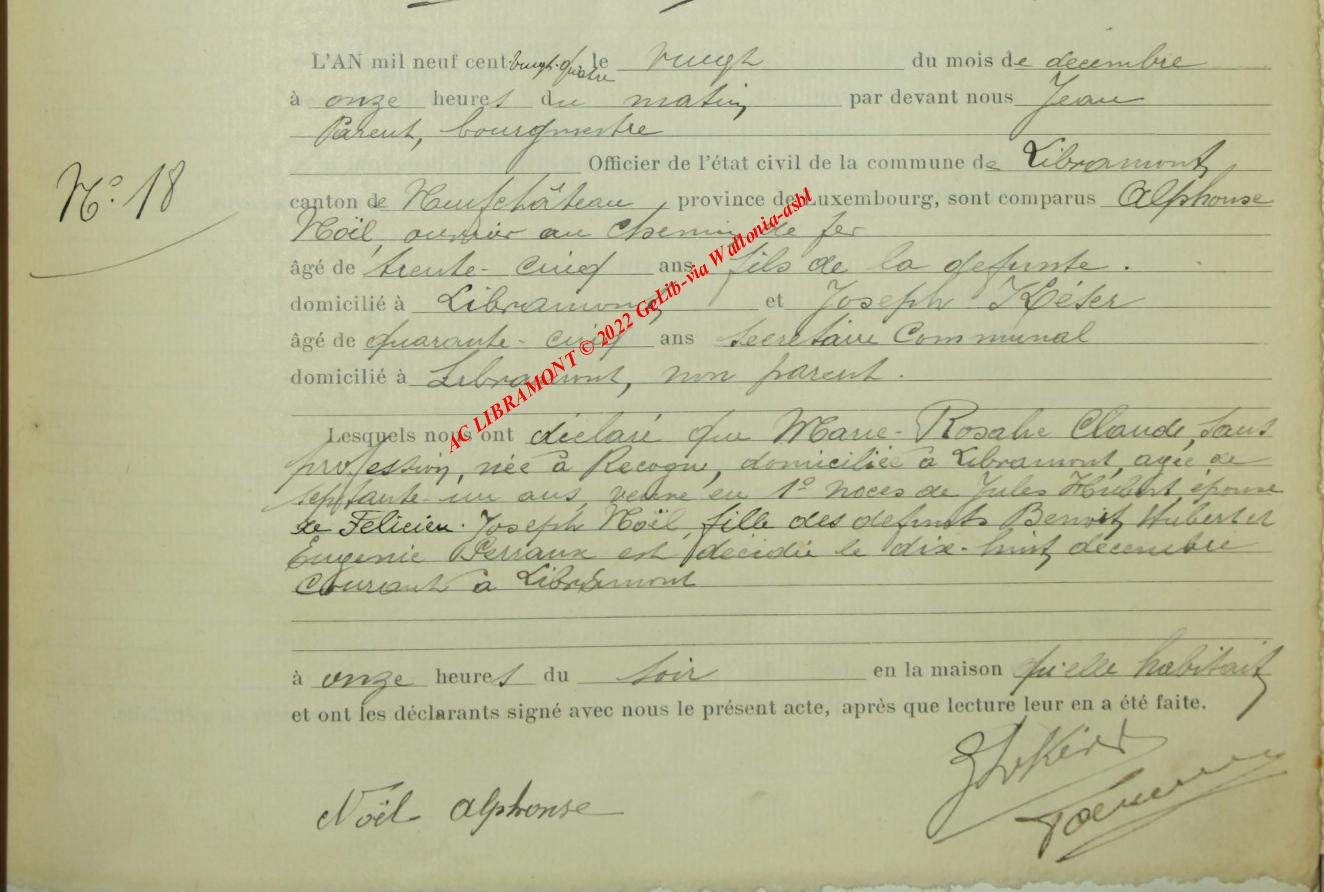 L'AN mil neuf cent vingt-quatre le vingt du mois de décembre
à onze heures du matin, par devant nous Jean
Parent, bourgmestre
Officier de l'état civil de la commune de Libramont,
N° 18
canton de Neufchâteau, province de Luxembourg, sont comparus Alphonse
Noël, ouvrier au chemin de fer
âgé de trente-cinq ans fils de la defunte.
domicilié à Libramont et Joseph
âgé de quarante-cinq ans secrétaire Communal
domicilié à Libramont, non parent.
AC LIBRAMONT © 2022 GeLib-via Wallonia-asbl
Lesquels nous ont déclaré que Marie-Rosalie Claude, sans
profession, née à Recogne, domiciliée à Libramont, agée de
septante-un ans, veuve en 1° noces de Jules Hubert, épouse
de Félicien-Joseph Noël, fille des defunts Benoit, Hubert et
Eugenie Perraux est décédée le dix-huit décembre
Courant à Libramont
à onze heures du soir en la maison qu'elle habitait
et ont les déclarants signé avec nous le présent acte, après que lecture leur en a été faite.
Noël Alphonse